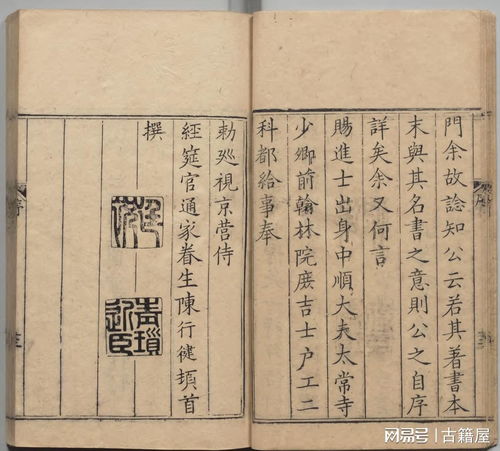 門余故諗知公云若其著書本
末與其名書之意則公之自序
詳矣余又何言
賜進士出身中順大夫太常寺
少卿前翰林院庶吉士户工二
科都給事奉
勑廵視京營侍
經筵官通家眷生陳行健頓首
撰
青瑣
近臣
序
網易号 | 古籍屋